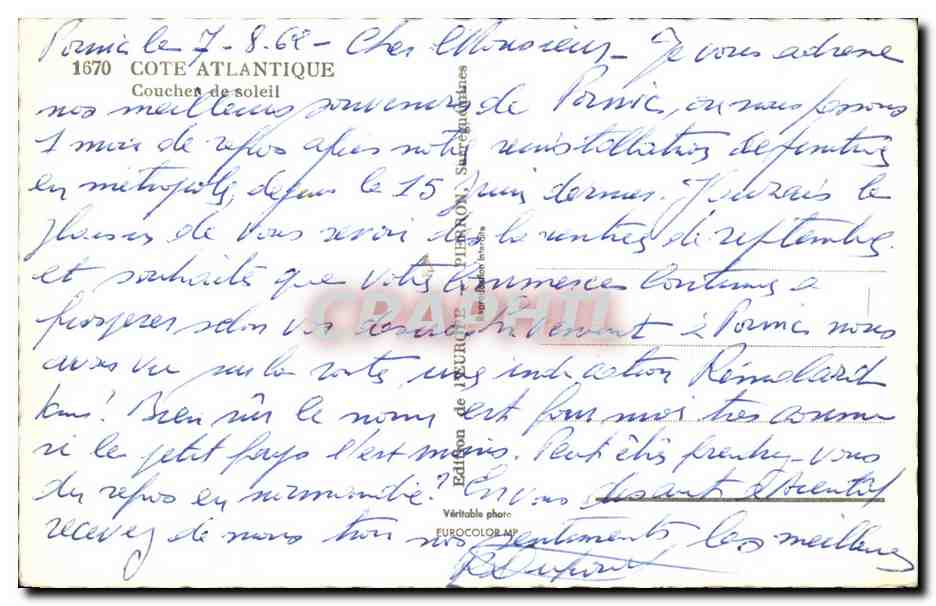 Pornic le 7-8.62- Cher Monsieur_ Je vous adresse
1670 COTE ATLANTIQUE
Coucher de soleil
nos meilleurs souvenirs de Pornic, où nous passons
1 mois de repos après notre réinstallation définitive
en métropole, depuis le 15 Juin dernier. J'aurais le
plaisir de vous revoir dès la rentrée de septembre
et souhaite que votre commerce continue à
prospérer selon vos désirs. En venant à Pornic nous
avons vu sur la route, une indication Rémalard
kms! Bien sûr le nom est pour moi très connu
si le petit pays l'est moins. Peut être prendrez-vous
du repos en normandie? En vous disant à bientôt
recevez de nous tous nos sentiments les meilleurs
Dupont
Edition de l'EUROPE - PIERRON, Sarreguemines
Reproduction interdite
Véritable photo
EUROCOLOR MP
CPAPHIL